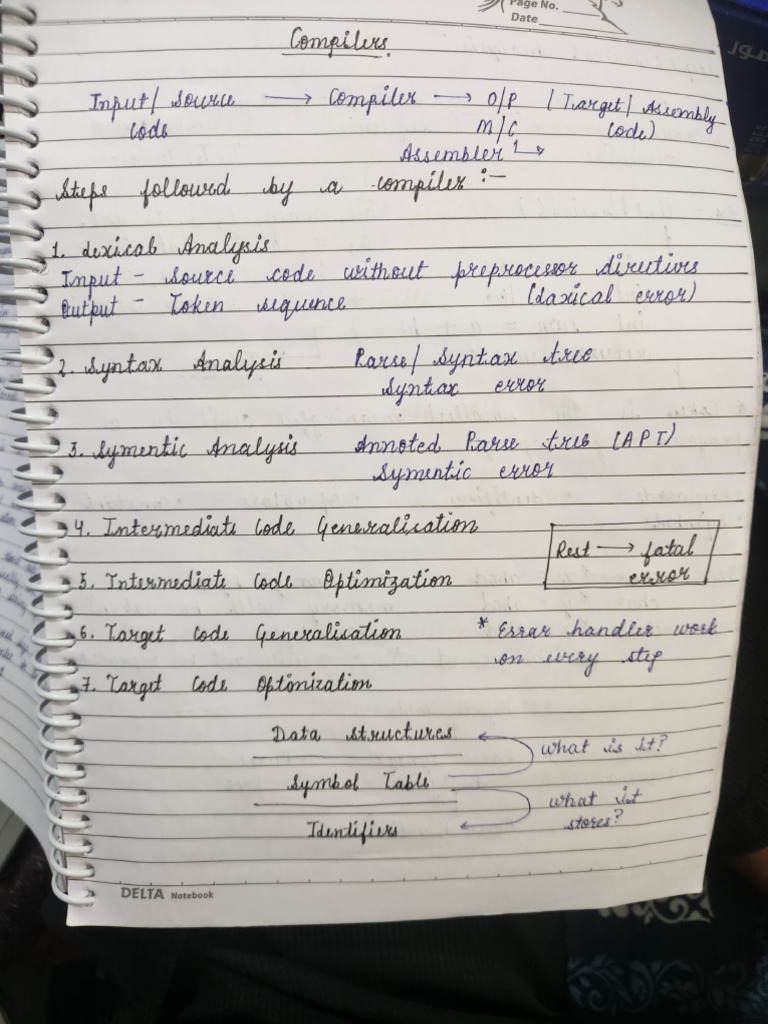 Page No.
Date
Compilers
Input/ Source → Compiler → O/P (Target/ Assembly
Code M/C Code)
Assembler
Steps followed by a compiler :-
1. Lexical Analysis
Input - Source code without preprocessor directives
Output - Token sequence (Laxical error)
2. Syntax Analysis Parse/ Syntax tree
Syntax error
3. Symentic Analysis Annoted Parse tree (APT)
Symentic error
4. Intermediate Code Generalisation
Rest → fatal
error
5. Intermediate Code Optimization
6. Target Code Generalisation * Error handler work
on every step
7. Target Code Optimization
Data structures
what is it?
Symbol Table
what it
stores?
Identifiers
DELTA Notebook